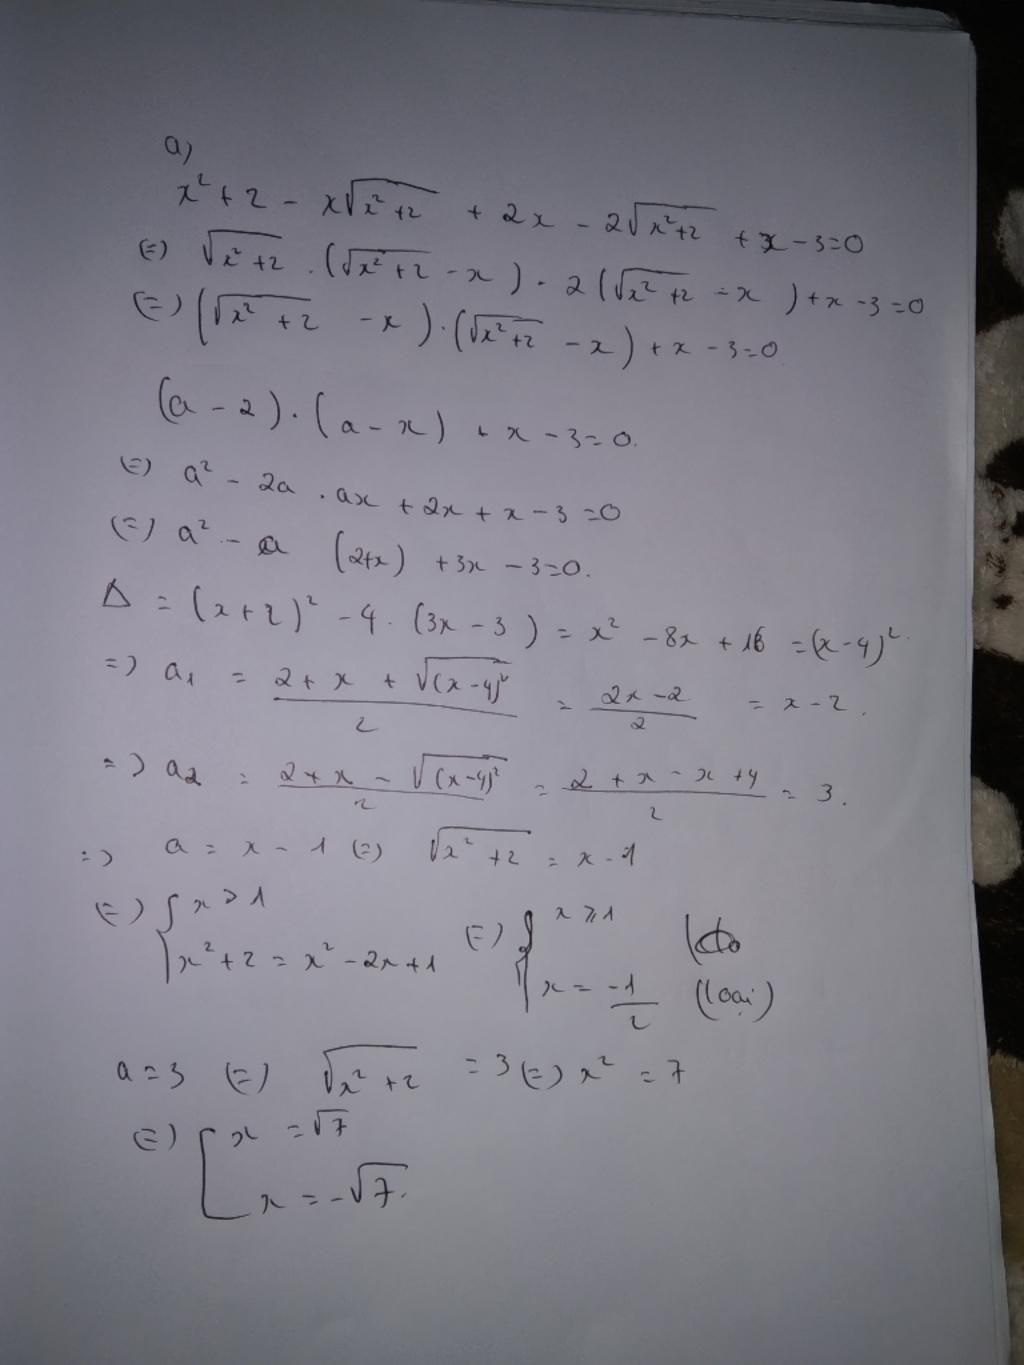 a)
x² + 2 - x√(x²+2) + 2x - 2√(x²+2) + x - 3 = 0
(=) √(x²+2) . (√(x²+2) - x) - 2(√(x²+2) - x) + x - 3 = 0
(=) (√(x²+2) - x) . (√(x²+2) - x) + x - 3 = 0
(a - 2) . (a - x) + x - 3 = 0.
(=) a² - 2a . ax + 2x + x - 3 = 0
(=) a² - a (2+x) + 3x - 3 = 0.
Δ = (x + 2)² - 4 . (3x - 3) = x² - 8x + 16 = (x - 4)².
=) a₁ = (2 + x + √(x-4)²)/2 = (2x - 2)/2 = x - 2.
=) a₂ = (2 + x - √(x-4)²)/2 = (2 + x - x + 4)/2 = 3.
=) a = x - 1 (=) √(x²+2) = x - 1
(=) { x ≥ 1 (=) { x ≥ 1
x² + 2 = x² - 2x + 1 x = -1/2 (loại)
a = 3 (=) √(x²+2) = 3 (=) x² = 7
(=) [ x = √7
x = -√7.